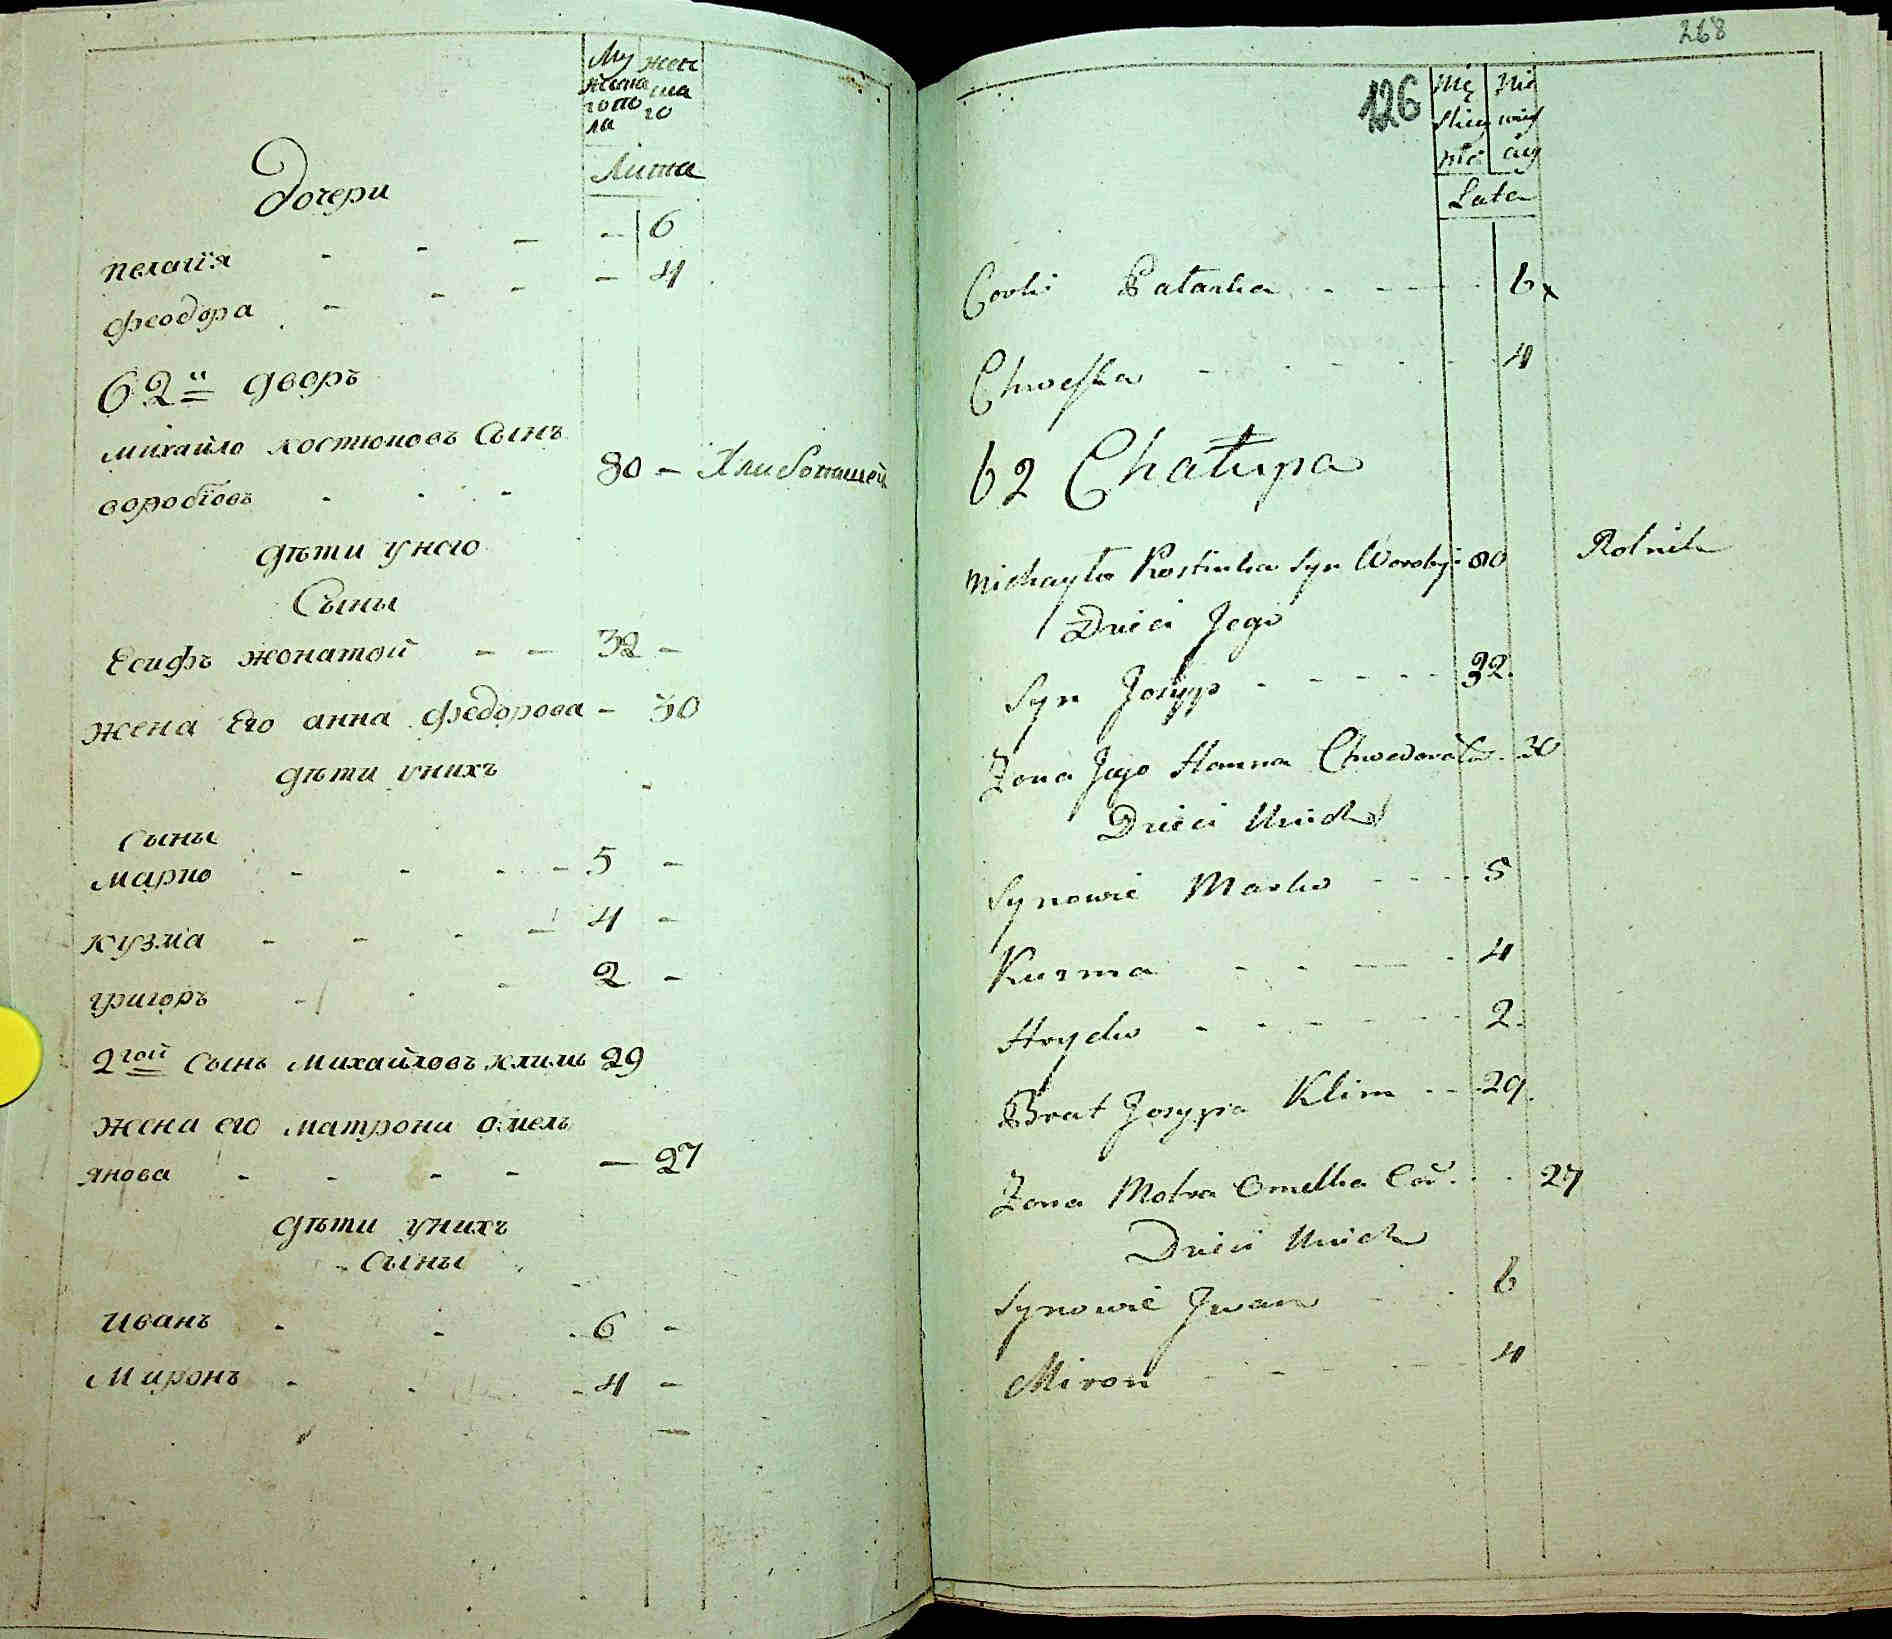 Му жен
жеска ска
гопо го
ла
Лита
Дочери
пелагія - - - - 6
феодора - - - - 4
62й дворъ
михайло костюковъ Сынъ
воробіовъ - - - 80 - Хлибопашец
дѣти унего
Сыны
Есифъ жонатой - - 32 -
жена Его анна федорова - 30
дѣти унихъ
Сыны
Марко - - - - 5 -
кузма - - - - 4 -
григоръ - - - 2 -
2гой Сынъ михайловъ климъ 29
жена его матрона омель
янова - - - - - 27
дѣти унихъ
Сыны
Иванъ - - - 6 -
Миронъ - - - 4 -
268
126
Mę Nie
skiey wieś
płci ciey
Lata
Corki Pałaska - - - - 6
Chweśka - - - - 4
62 Chałupa
Michayło Kostiuka Syn Woroby 80 Rolnik
Dzieci Jego
Syn Josyp - - - - - 32.
Zona Jego Hanna Chwedora Co. 30
Dzieci Unich
Synowie Marko - - - - 5
Kuzma - - - - 4
Hryćko - - - - - - 2.
Brat Josypa Klim - - 29.
Zona Motra Omelka Cor. - - 27
Dzieci Unich
Synowie Jwan - - 6
Miron - - - - 4